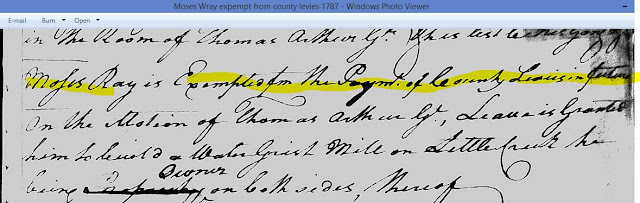 Moses Wray expempt from county levies 1787 - Windows Photo Viewer
E-mail Burn Open
in the Room of Thomas Arthur Gt.
Moses Ray is Exempted fm the Paymt. of County Levies in future
On the Motion of Thomas Arthur Gt., Leave is Granted
him to build a Water Grist Mill on Little Creek he
Owner
being on both sides, thereof